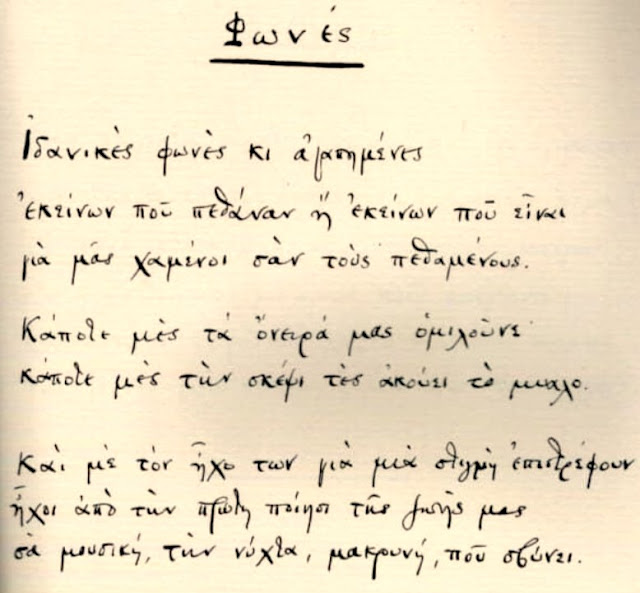 Φωνές
Ἰδανικὲς φωνὲς κι ἀγαπημένες
ἐκείνων ποῦ πεθάναν ἤ ἐκείνων ποῦ εἶναι
γιὰ μᾶς χαμένοι σὰν τοὺς πεθαμένους.
Κάποτε μὲς τὰ ὄνειρά μας ὁμιλοῦνε·
κάποτε μὲς τὴν σκέψι τὲς ἀκούει τὸ μυαλο.
Καὶ μὲ τὸν ἦχο των γιὰ μιὰ στιγμὴ ἐπιστρέφουν
ἦχοι ἀπὸ τὴν πρώτη ποίησι τῆς ζωῆς μας
σὰ μουσική, τὴν νύχτα, μακρυνή, ποῦ σβύνει.